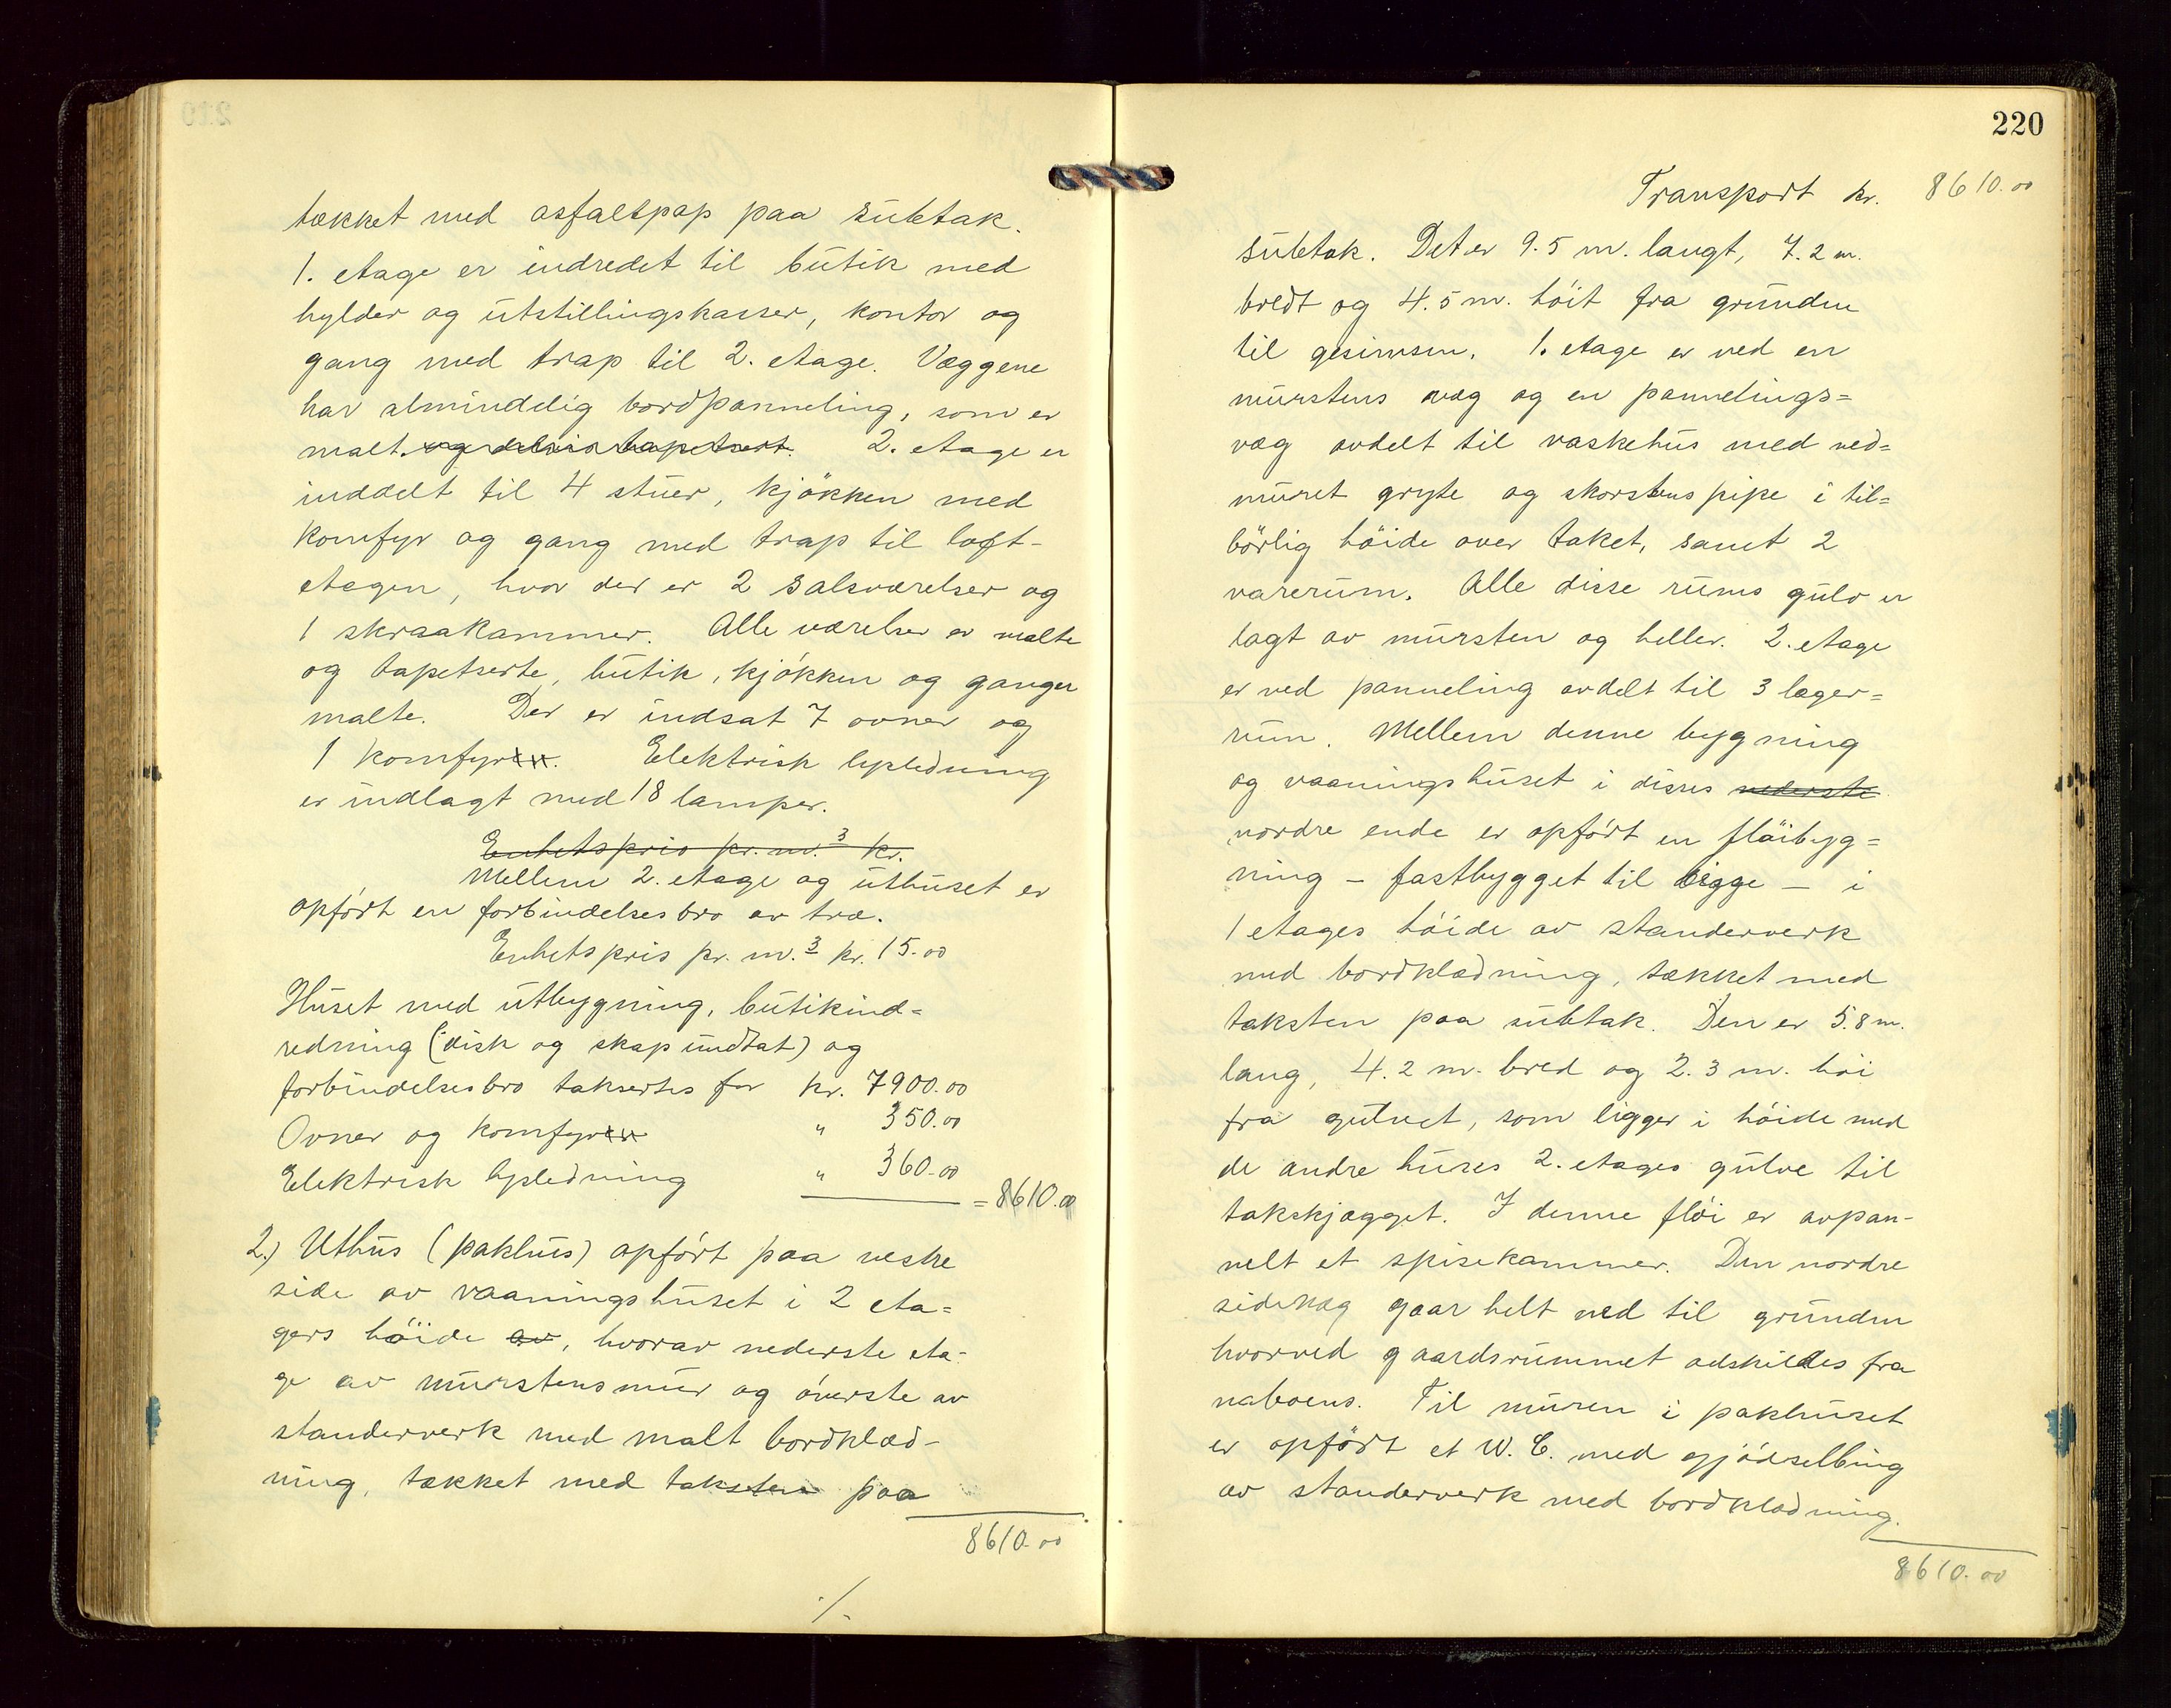 tækket med asfaltpap paa sutak.
1. etage er indredet til butik med
hylder og utstillingskasser, kontor og
gang med trap til 2. etage. Væggene
har almindelig bordpanneling, som er
malt. og delvis tapetsert. 2. etage er
inddelt til 4 stuer, kjökken med
komfyr og gang med trap til loft-
etagen, hvor der er 2 salsværelser og
1 skraakammer. Alle værelser er malte
og tapetserte, butik, kjökken og ganger
malte. Der er indsat 7 ovner og
1 komfyrer. Elektrisk lysledning
er indlagt med 18 lamper.
Enhetspris pr. m.3 kr.
Mellem 2. etage og uthuset er
opfört en forbindelsesbro av træ.
Enhetspris pr. m.3 kr. 15.00
Huset med utbygning, butikind=
redning (disk og skap undtat) og
forbindelsesbro taksertes for kr. 7900.00
Ovner og komfyrer " 350.00
Elektrisk lysledning " 360.00
= 8610.00
2.) Uthus (pakhus) opfört paa vestre
side av vaaningshuset i 2 eta=
gers höide av, hvorav nederste eta-
ge av murstensmur og överste av
standerverk med malt bordklæd-
ning, tækket med taksten paa
8610.00
./.
220
Transport kr. 8610.00
sutak. Det er 9.5 m. langt, 7.2 m.
bredt og 4.5 m. höit fra grunden
til gesimsen. 1. etage er ved en
murstens væg og en pannelings=
væg avdelt til vaskehus med ned=
muret gryte og skorstenspipe i til=
börlig höide over taket, samt 2
varerum. Alle disse rums gulv er
lagt av mursten og heller. 2. etage
er ved panneling avdelt til 3 lager=
rum. Mellem denne bygning
og vaaningshuset i disses nederste
nordre ende er opfört en flöibyg=
ning – fastbygget til begge – i
1 etages höide av standerverk
med bordklædning, tækket med
taksten paa sutak. Den er 5.8 m.
lang, 4.2 m. bred og 2.3 m. höi
fra gulvet, som ligger i höide med
de andre huses 2. etages gulve til
takskjægget. I denne flöi er avpan-
nelt et spisekammer. Den nordre
sidevæg gaar helt ned til grunden
hvorved gaardsrummet adskilles fra
naboens. Til muren i pakhuset
er opfört et W. C. med gjödselbing
av standerverk med bordklædning.
8610.00